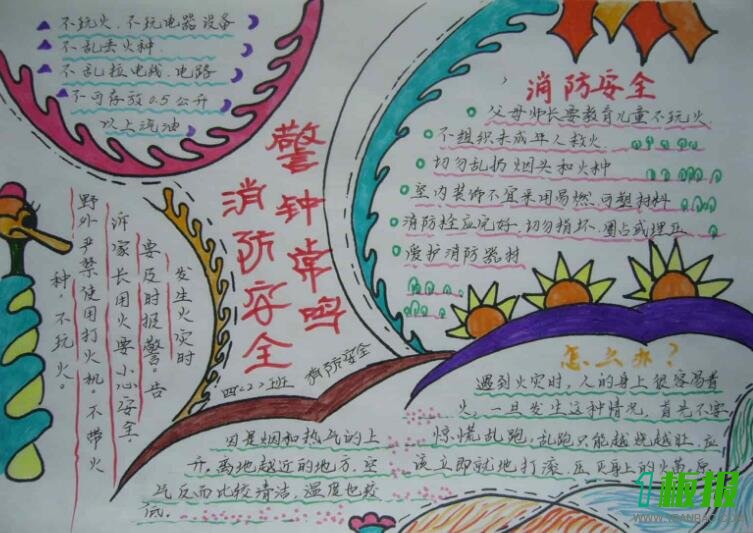 不玩火、不玩电器设备
不乱丢火种
不乱拉电线、电路
不可存放0.5公升
以上汽油
警钟常鸣
消防安全
四〈2〉班
消防安全
消防安全
父母师长要教育儿童不玩火
不组织未成年人救火
切勿乱扔烟头和火种
室内装饰不宜采用易燃、可塑材料
消防栓应完好、切勿损坏、圈占或埋压
爱护消防器材
发生火灾时
要及时报警。告
诉家长用火要小心安全，
野外严禁使用打火机。不带火
种，不玩火。
怎么办？
遇到火灾时，人的身上很容易着
火，一旦发生这种情况，首先不要
惊慌乱跑，乱跑只能越烧越旺，应
该立即就地打滚，压灭身上的火苗
因是烟和热气的上
升，离地越近的地方，空
气反而比较清洁，温度也较
低。
板报